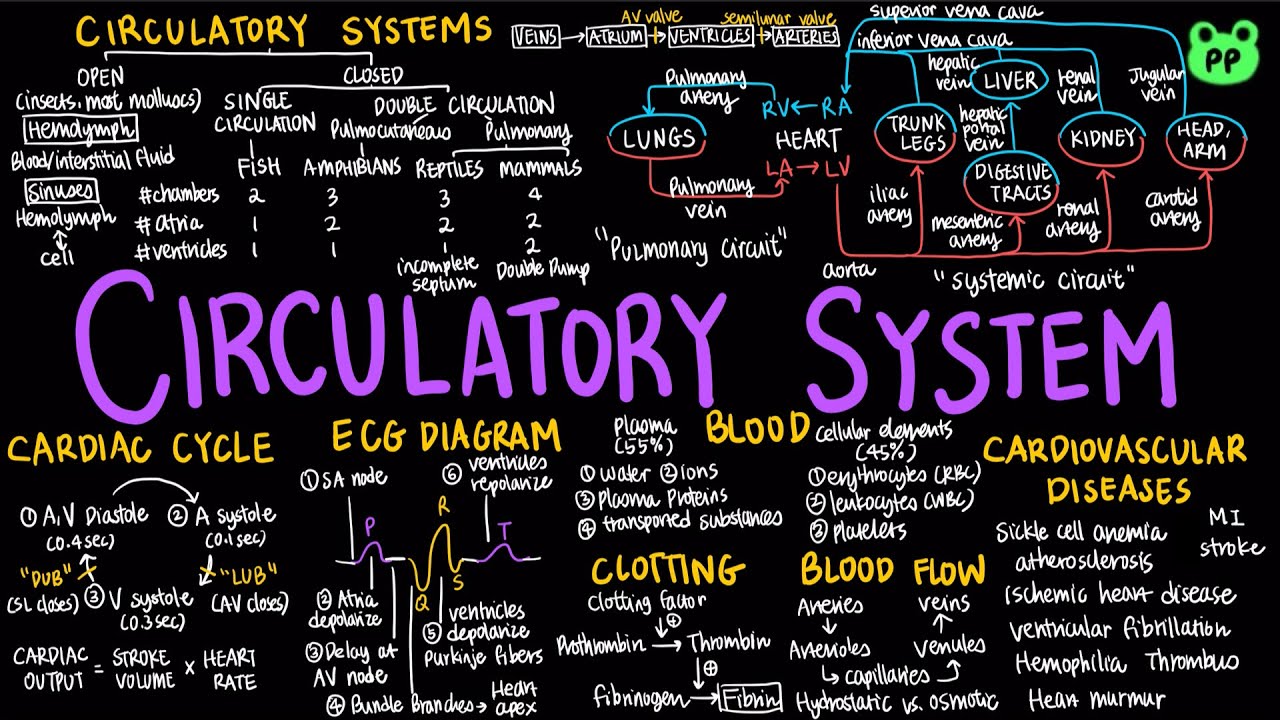 CIRCULATORY SYSTEMS
OPEN
(insects, most molluocs)
Hemolymph
Blood/interstitial fluid
Sinuses
Hemolymph
cell
CLOSED
SINGLE CIRCULATION
DOUBLE CIRCULATION
Pulmocutaneous
Pulmonary
FISH AMPHIBIANS REPTILES MAMMALS
#chambers 2 3 3 4
#atria 1 2 2 2
#ventricles 1 1 1 2
incomplete septum
Double Pump
AV valve
semilunar valve
VEINS → ATRIUM + VENTRICLES + ARTERIES
superior vena cava
inferior vena cava
PP
Pulmonary artery
RV ← RA
LUNGS
HEART
LA → LV
Pulmonary vein
"Pulmonary circuit"
hepatic vein
LIVER
renal vein
Jugular vein
TRUNK LEGS
hepatic portal vein
KIDNEY
HEAD, ARM
DIGESTIVE TRACTS
iliac artery
mesenteric artery
renal artery
carotid artery
aorta
"systemic circuit"
CIRCULATORY SYSTEM
CARDIAC CYCLE
① A,V Diastole
(0.4sec)
② A systole
(0.1sec)
"DUB"
(SL closes)
"LUB"
(AV closes)
③ V systole
(0.3sec)
CARDIAC OUTPUT = STROKE VOLUME × HEART RATE
ECG DIAGRAM
① SA node
⑥ ventricles repolarize
P
R
T
Q
S
② Atria depolarize
③ Delay at AV node
④ Bundle Branches → Heart apex
⑤ ventricles depolarize
Purkinje fibers
BLOOD
Plasma
(55%)
① water ② ions
③ Plasma Proteins
④ transported substances
cellular elements
(45%)
① erythrocytes (RBC)
② leukocytes (WBC)
③ platelets
CLOTTING
Clotting factor
Prothrombin → Thrombin
fibrinogen → Fibrin
BLOOD FLOW
Arteries
Arterioles
capillaries
venules
veins
Hydrostatic vs. osmotic
CARDIOVASCULAR DISEASES
Sickle cell anemia
MI
atherosclerosis
stroke
Ischemic heart disease
ventricular fibrillation
Hemophilia Thrombus
Heart murmur